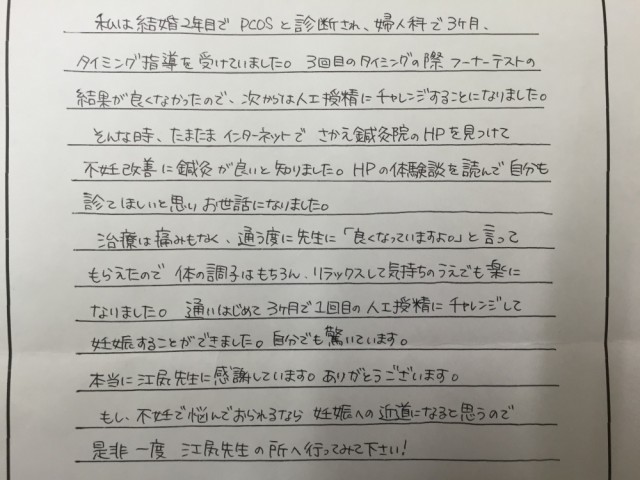 私は結婚2年目で PCOSと診断され、婦人科で3ヶ月、
タイミング指導を受けていました。3回目のタイミングの際 フーナーテストの
結果が良くなかったので、次からは人工授精にチャレンジすることになりました。
そんな時、たまたま インターネットで さかえ鍼灸院のHPを見つけて
不妊改善に鍼灸が良いと知りました。HPの体験談を読んで自分も
診てほしいと思い お世話になりました。
治療は痛みもなく、通う度に先生に「良くなっていますよ。」と言って
もらえたので 体の調子はもちろん、リラックスして気持ちのうえでも楽に
なりました。 通いはじめて 3ヶ月で1回目の人工授精にチャレンジして
妊娠することができました。自分でも驚いています。
本当に江尻先生に感謝しています。ありがとうございます。
もし、不妊で悩んでおられるなら 妊娠への近道になると思うので
是非一度 江尻先生の所へ行ってみて下さい!